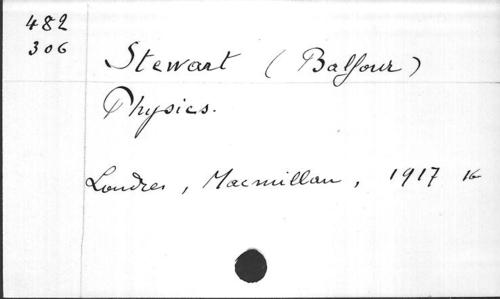 482
306
Stewart (Balfour)
Physics.
Londres, Macmillan, 1917 16